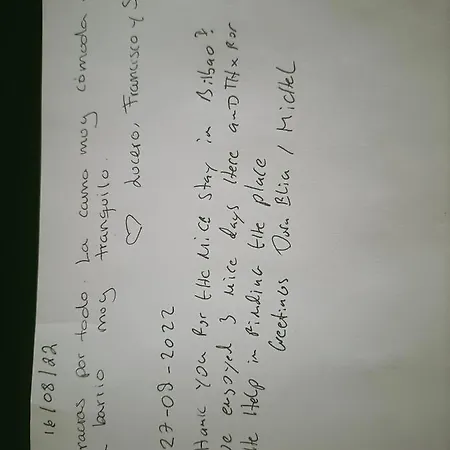 16/08/22
racias por todo. La cama moy cómoda.
barrio moy tranquilo.
Lucero, Francisco y S
27-09-2022
Hank you For tHe Nice stay in Bilbao?
ve enjoyed 3 nice days Here anD THx For
He Help in Finding tHe place
Greetings / Michel